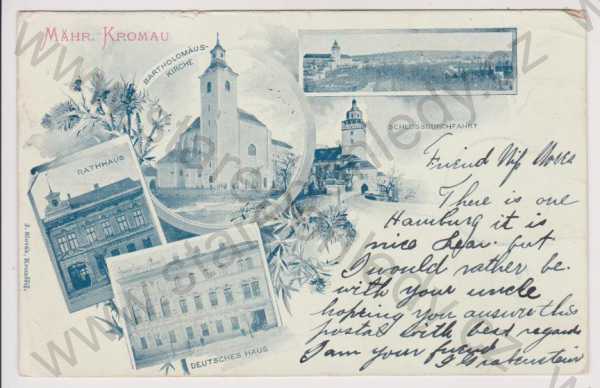 MÄHR. KROMAU
BARTHOLOMÄUS-
KIRCHE
SCHLOSSDURCHFAHRT
RATHHAUS
DEUTSCHES HAUS
Friend
There is one
Hamburg it is
nice dear. but
I would rather be.
with your uncle
hoping you answer this
postal with best regards
I am your friend